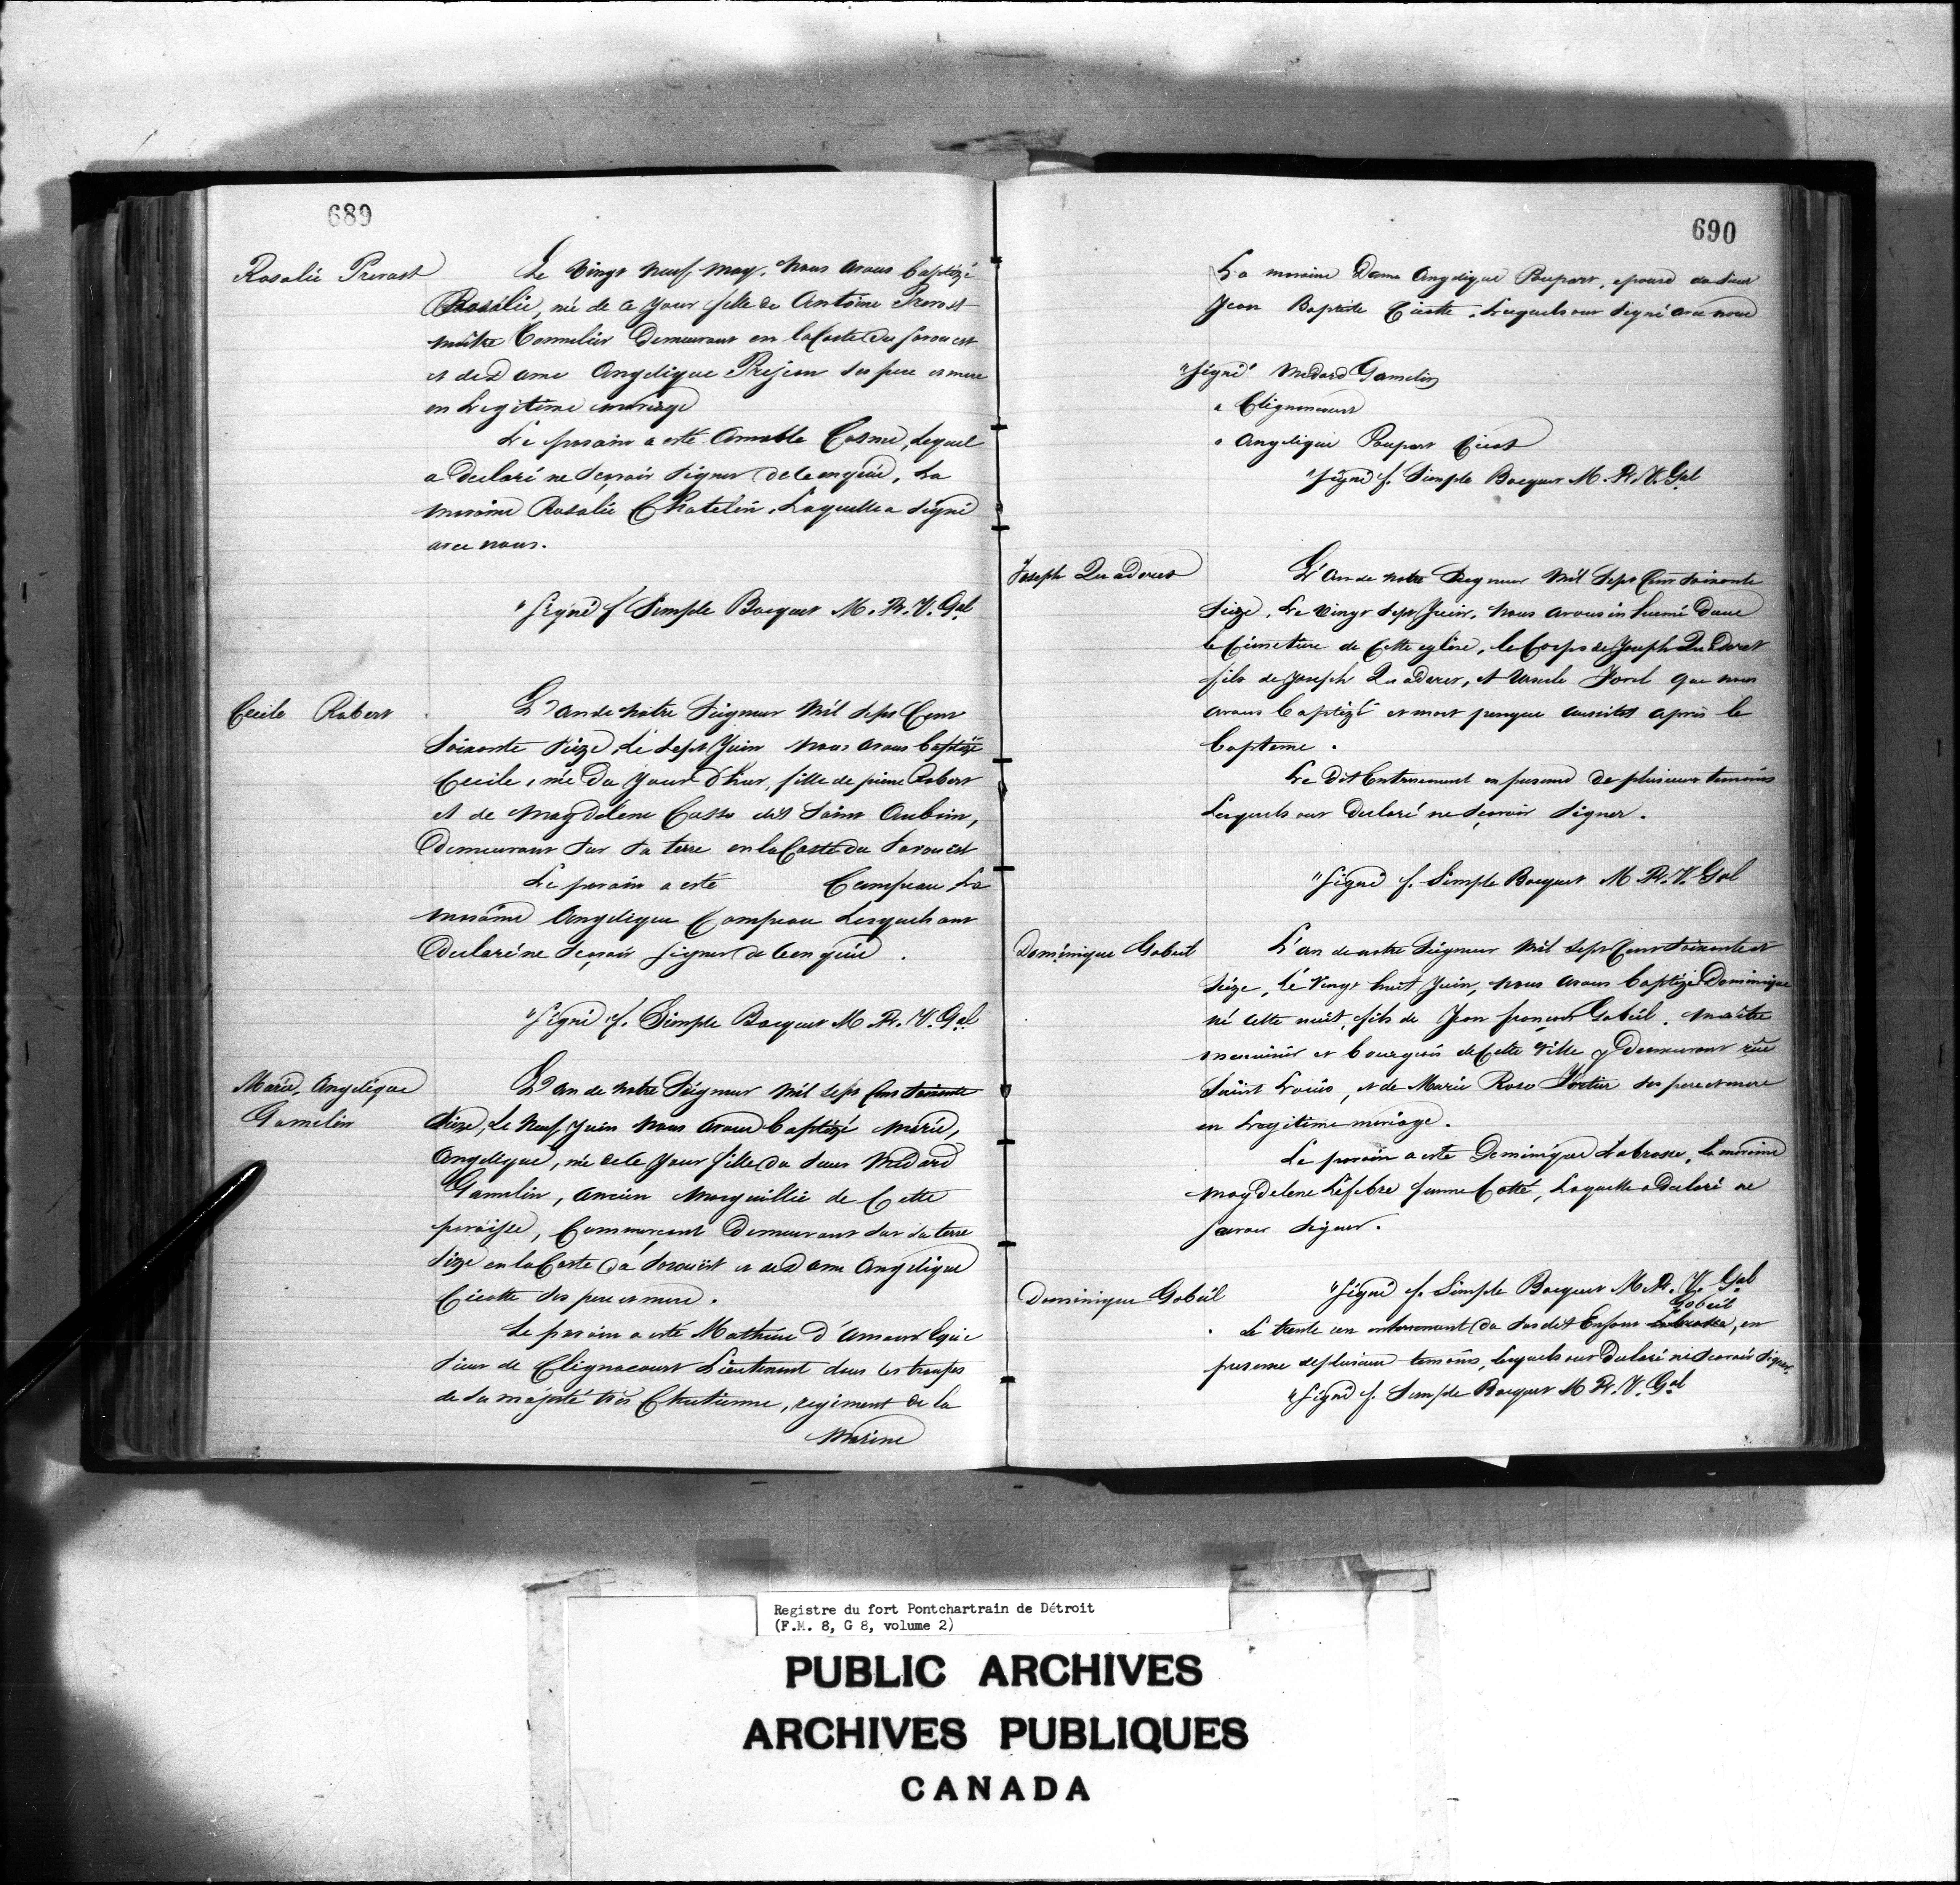 689
Rosalie Prevost
Le vingt neuf may, nous avons baptizé
Rosalie, née de ce jour fille de Antoine Prevost
maitre Tonnelier demeurant en la Coste du sorouest
et de Dame Angelique Prejean ses pere et mere
en Legitime mariage
Le parain a esté Amable Cosme, Lequel
a declaré ne sçavoir signer de ce enquis, La
maraine Rosalie Chatelin, Laquelle a signé
avec nous.
"Signé f Simple Bocquet M. Pr. V. Gal
Cecile Robert
L'an de notre Seigneur mil sept Cent
soixante seize, Le sept Juin nous avons baptizé
Cecile, née du jour d'hier, fille de pierre Robert
et de Magdelene Casse dit Saint Aubin,
demeurant sur sa terre en la Coste du sorouest
Le parain a esté Campeau La
maraine Angelique Campeau Lesquels ont
declaré ne sçavoir signer de ce enquis.
"Signé f. Simple Bocquet M. Pr. V. Gal
Marie Angelique
Gamelin
L'an de notre Seigneur mil sept Cent soixante
seize, Le neuf Juin nous avons baptizé Marie,
Angelique, née de ce jour fille du sieur Medard
Gamelin, ancien Marguillié de Cette
paroisse, Commercant demeurant sur sa terre
size en la Coste du sorouest et de Dame Angelique
Cicotte ses pere et mere.
Le parain a esté Mathieu d'Amour
Sieur de Clignacourt Lieutenant dans les troupes
de sa majesté très Chretienne, regiment de la
Marine
690
La maraine Dame Angelique Poupart, epouse du sieur
Jean Baptiste Cicotte. Lesquels ont signé avec nous
"Signé" Medard Gamelin
" Clignancourt
" Angelique Poupart Cicot
"Signé f. Simple Bocquet M. Pr. V. Gal
Joseph
L'An de notre Seigneur Mil Sept Cent soixante
seize, Le vingt sept Juin, nous avons inhumé dans
le Cimetiere de Cette eglise, le Corps de Joseph
fils de Joseph et Ursule que nous
avons baptizé et mort presque aussitot après le
bapteme.
Le dit Enterrement en presence de plusieurs temoins
Lesquels ont declaré ne sçavoir signer.
"Signé f. Simple Bocquet M Pr. V. Gal
Dominique Gobeil
L'an de notre Seigneur Mil sept Cent soixante et
seize, le vingt huit Juin, nous avons baptizé Dominique
né cette nuit, fils de Jean françois Gobeil, maitre
menuisier et bourgeois de Cette ville y demeurant rue
Saint Louis, et de Marie Rose ses pere et mere
en Legitime mariage.
Le parain a esté Dominique Labrosse, La maraine
Magdelene Lefebre femme Cotté, Laquelle a declaré ne
savoir signer.
"Signé f. Simple Bocquet M. Pr. V. Gal
Dominique Gobeil
Gobeil
Le trente un enterrement du susdit Enfant Labrosse, en
presence de plusieurs temoins, lesquels ont declaré ne sçavoir signer.
"Signé f. Simple Bocquet M Pr. V. Gal
Registre du fort Pontchartrain de Détroit
(F.M. 8, G 8, volume 2)
PUBLIC ARCHIVES
ARCHIVES PUBLIQUES
CANADA